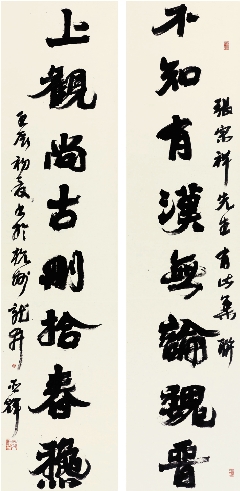 不知有漢無論魏晋
張宗祥先生有此集聯
上觀尚古刪拾春穐
初夏書於杭州龍井